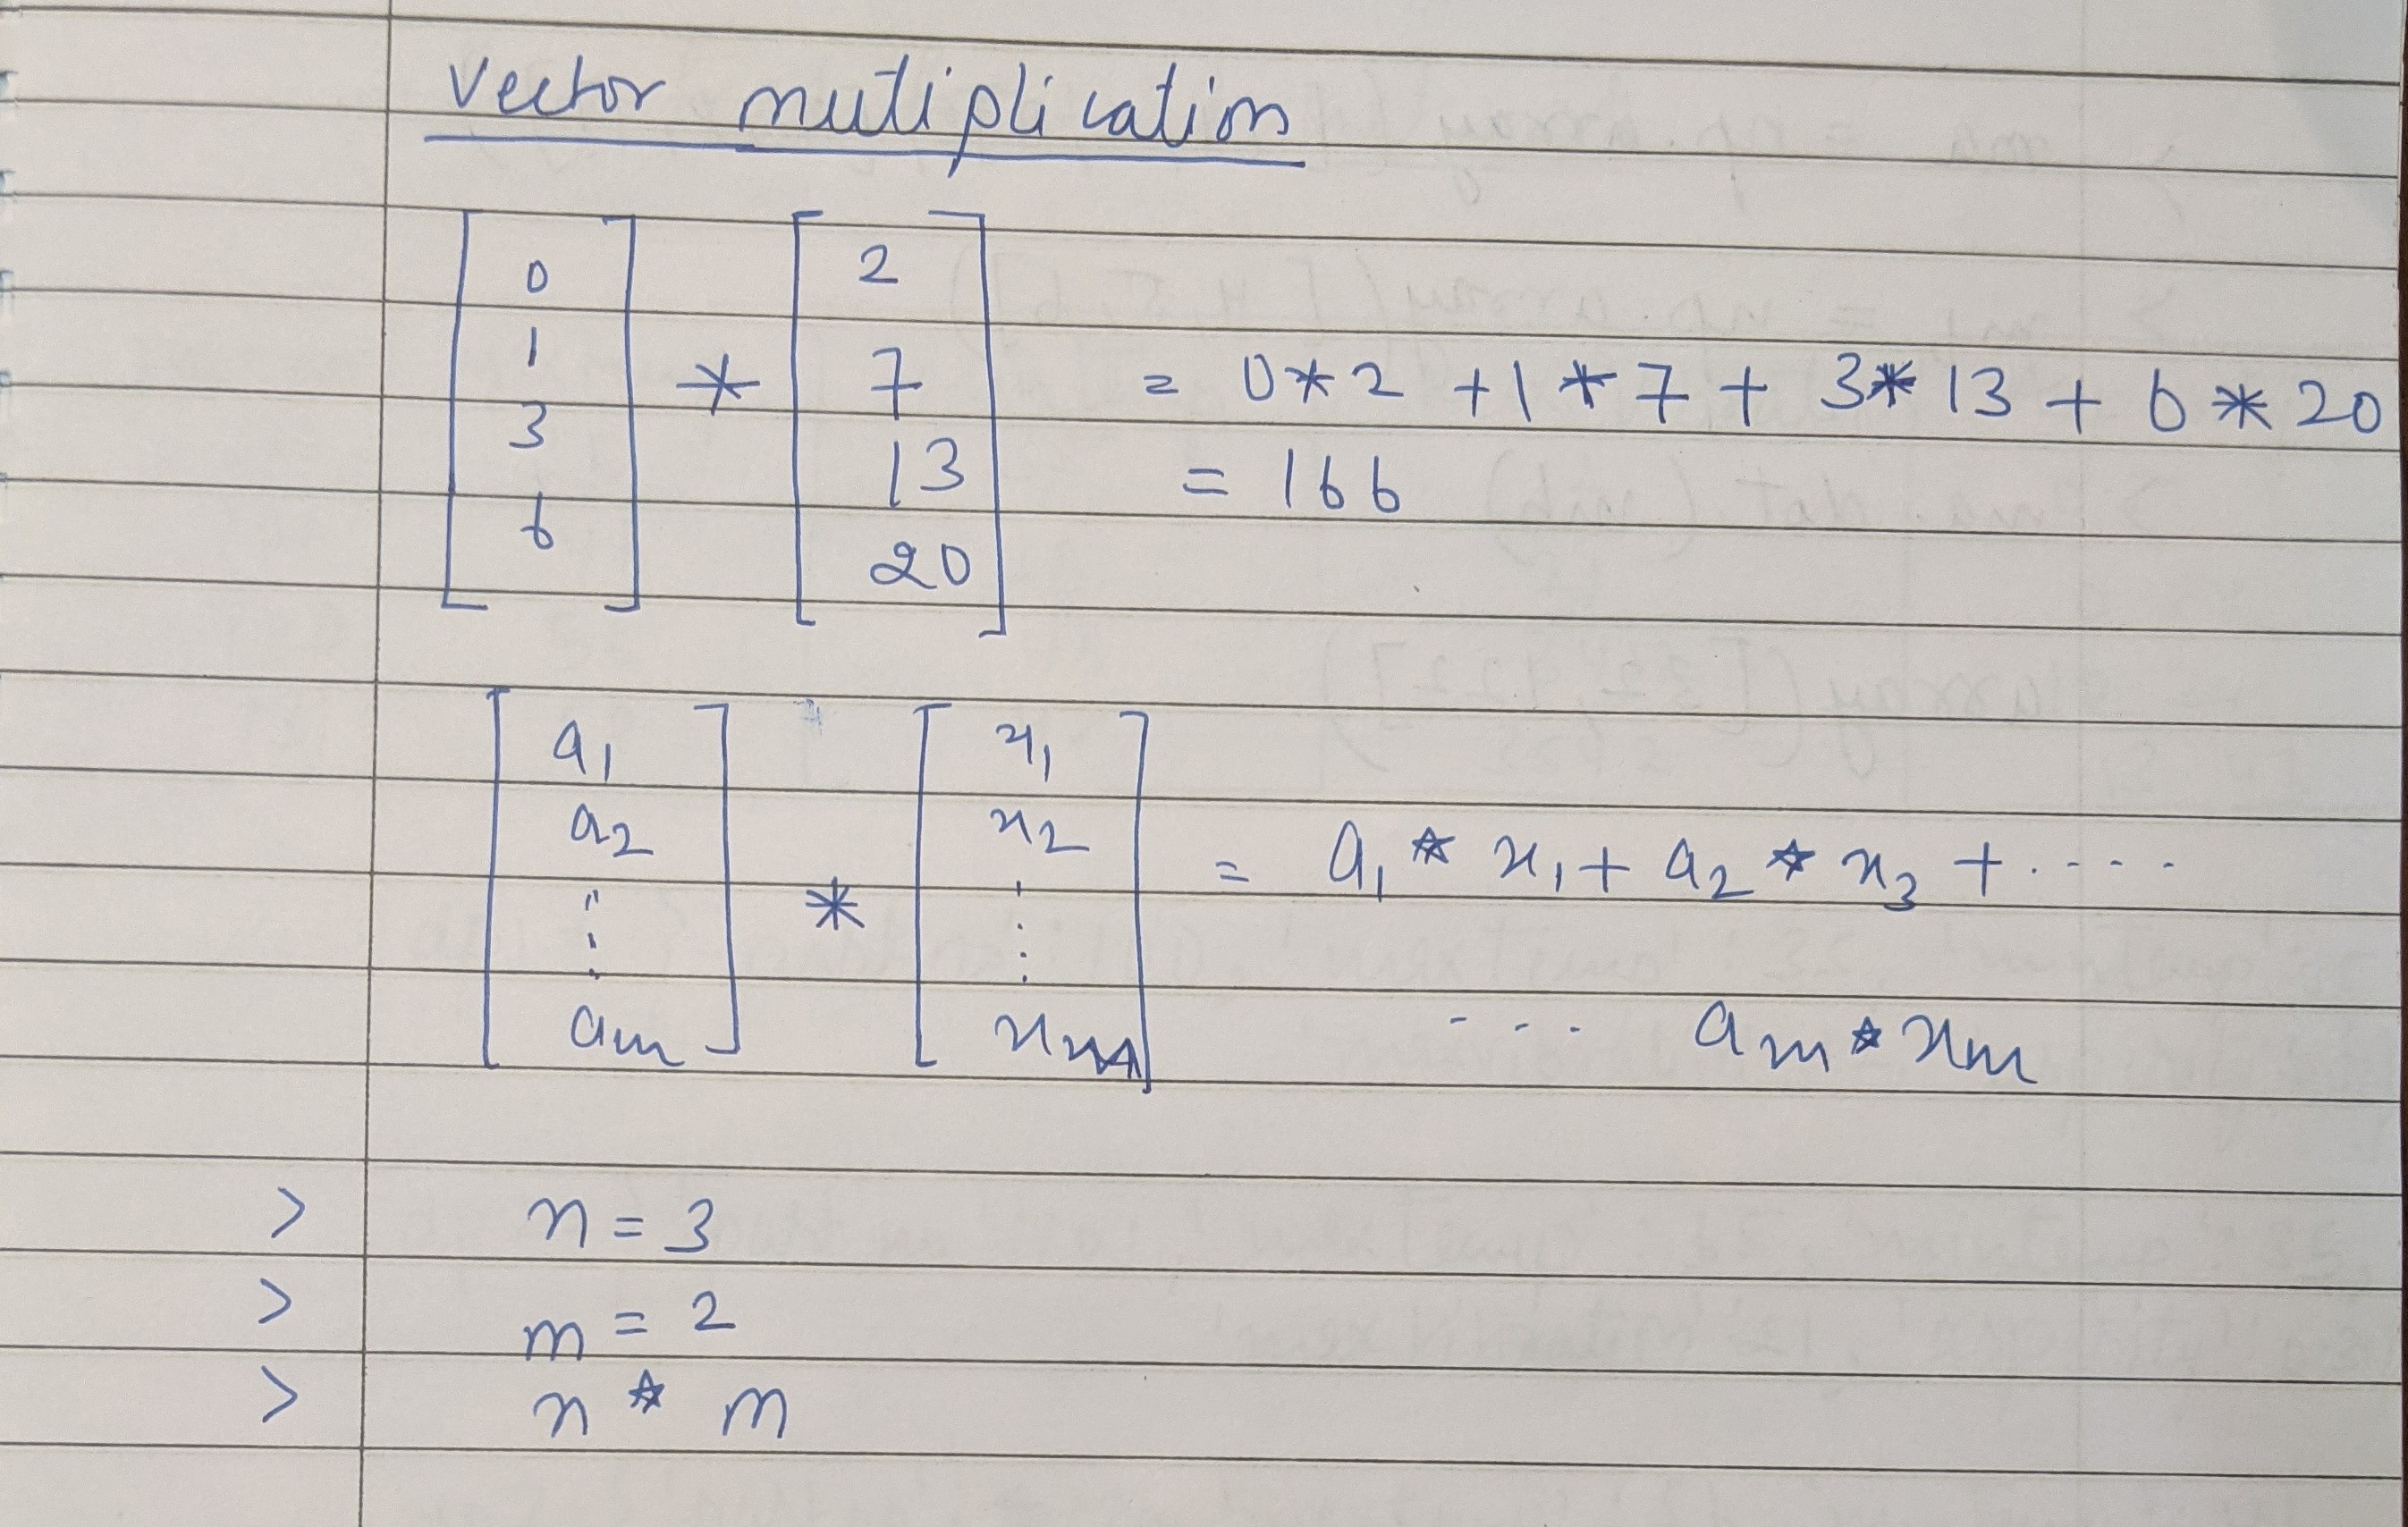 Vector mutiplication
[0 1 3 6] * [2 7 13 20] = 0*2 +1*7+ 3*13 + 6*20
= 166
[a1 a2 ⋮ am] * [x1 x2 ⋮ xm] = a1* x1+ a2*x3 +....
... am*xm
> n=3
> m=2
> n * m